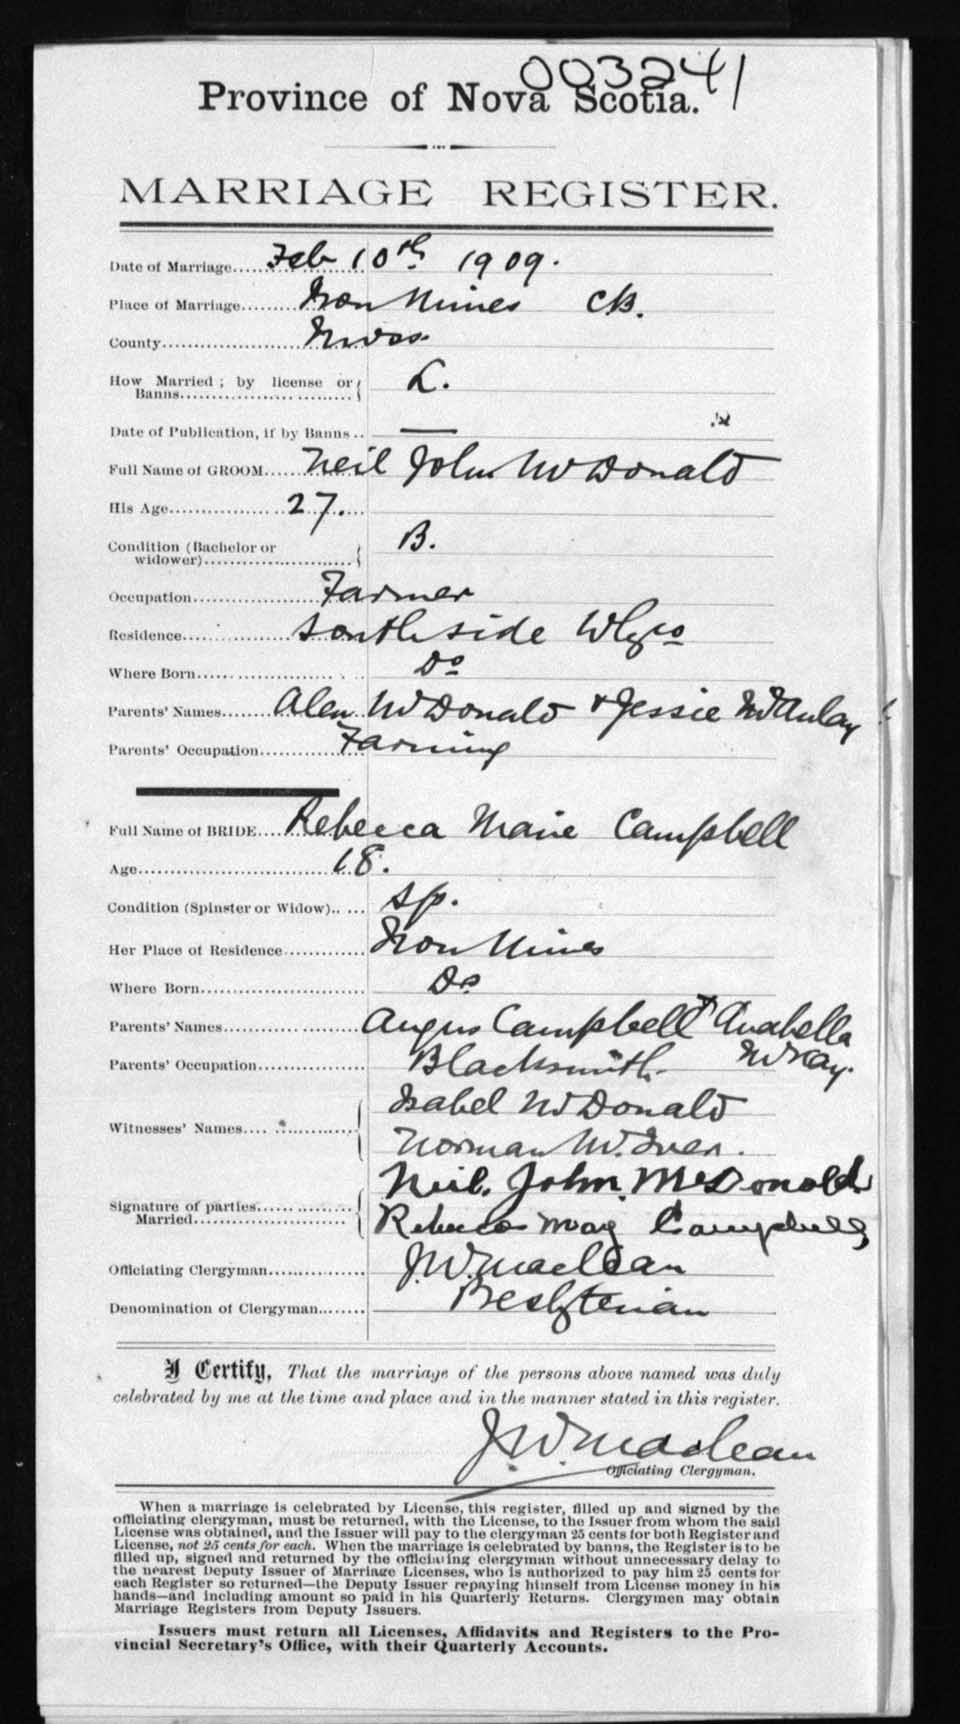 003241
Province of Nova Scotia.
MARRIAGE REGISTER.
Date of Marriage..... Feb 10th 1909.
Place of Marriage........ Iron Mines CB.
County.................... Inves
How Married; by license or Banns.................... L.
Date of Publication, if by Banns .. —
Full Name of GROOM..... Neil John McDonald
His Age.................... 27.
Condition (Bachelor or widower)........................ B.
Occupation.................... Farmer
Residence.................... South side Whyco
Where Born.................... Do
Parents' Names....... Alen McDonald & Jessie McAulay
Parents' Occupation............ Farming
Full Name of BRIDE.... Rebecca Marie Campbell
Age.................... 18.
Condition (Spinster or Widow)...... Sp.
Her Place of Residence............ Iron Mines
Where Born.................... Do
Parents' Names.................... Angus Campbell & Anabella
McKay.
Parents' Occupation................ Blacksmith
Witnesses' Names.................... Isabel McDonald
Norman McIver.
Signature of parties Married.................... Neil. John. McDonald
Rebecca May Campbell
Officiating Clergyman............... J.W. Maclean
Denomination of Clergyman........ Presbyterian
I Certify, That the marriage of the persons above named was duly
celebrated by me at the time and place and in the manner stated in this register.
J.W. Maclean
Officiating Clergyman.
When a marriage is celebrated by License, this register, filled up and signed by the
officiating clergyman, must be returned, with the License, to the Issuer from whom the said
License was obtained, and the Issuer will pay to the clergyman 25 cents for both Register and
License, not 25 cents for each. When the marriage is celebrated by banns, the Register is to be
filled up, signed and returned by the officiating clergyman without unnecessary delay to
the nearest Deputy Issuer of Marriage Licenses, who is authorized to pay him 25 cents for
each Register so returned—the Deputy Issuer repaying himself from License money in his
hands—and including amount so paid in his Quarterly Returns. Clergymen may obtain
Marriage Registers from Deputy Issuers.
Issuers must return all Licenses, Affidavits and Registers to the Pro-
vincial Secretary's Office, with their Quarterly Accounts.